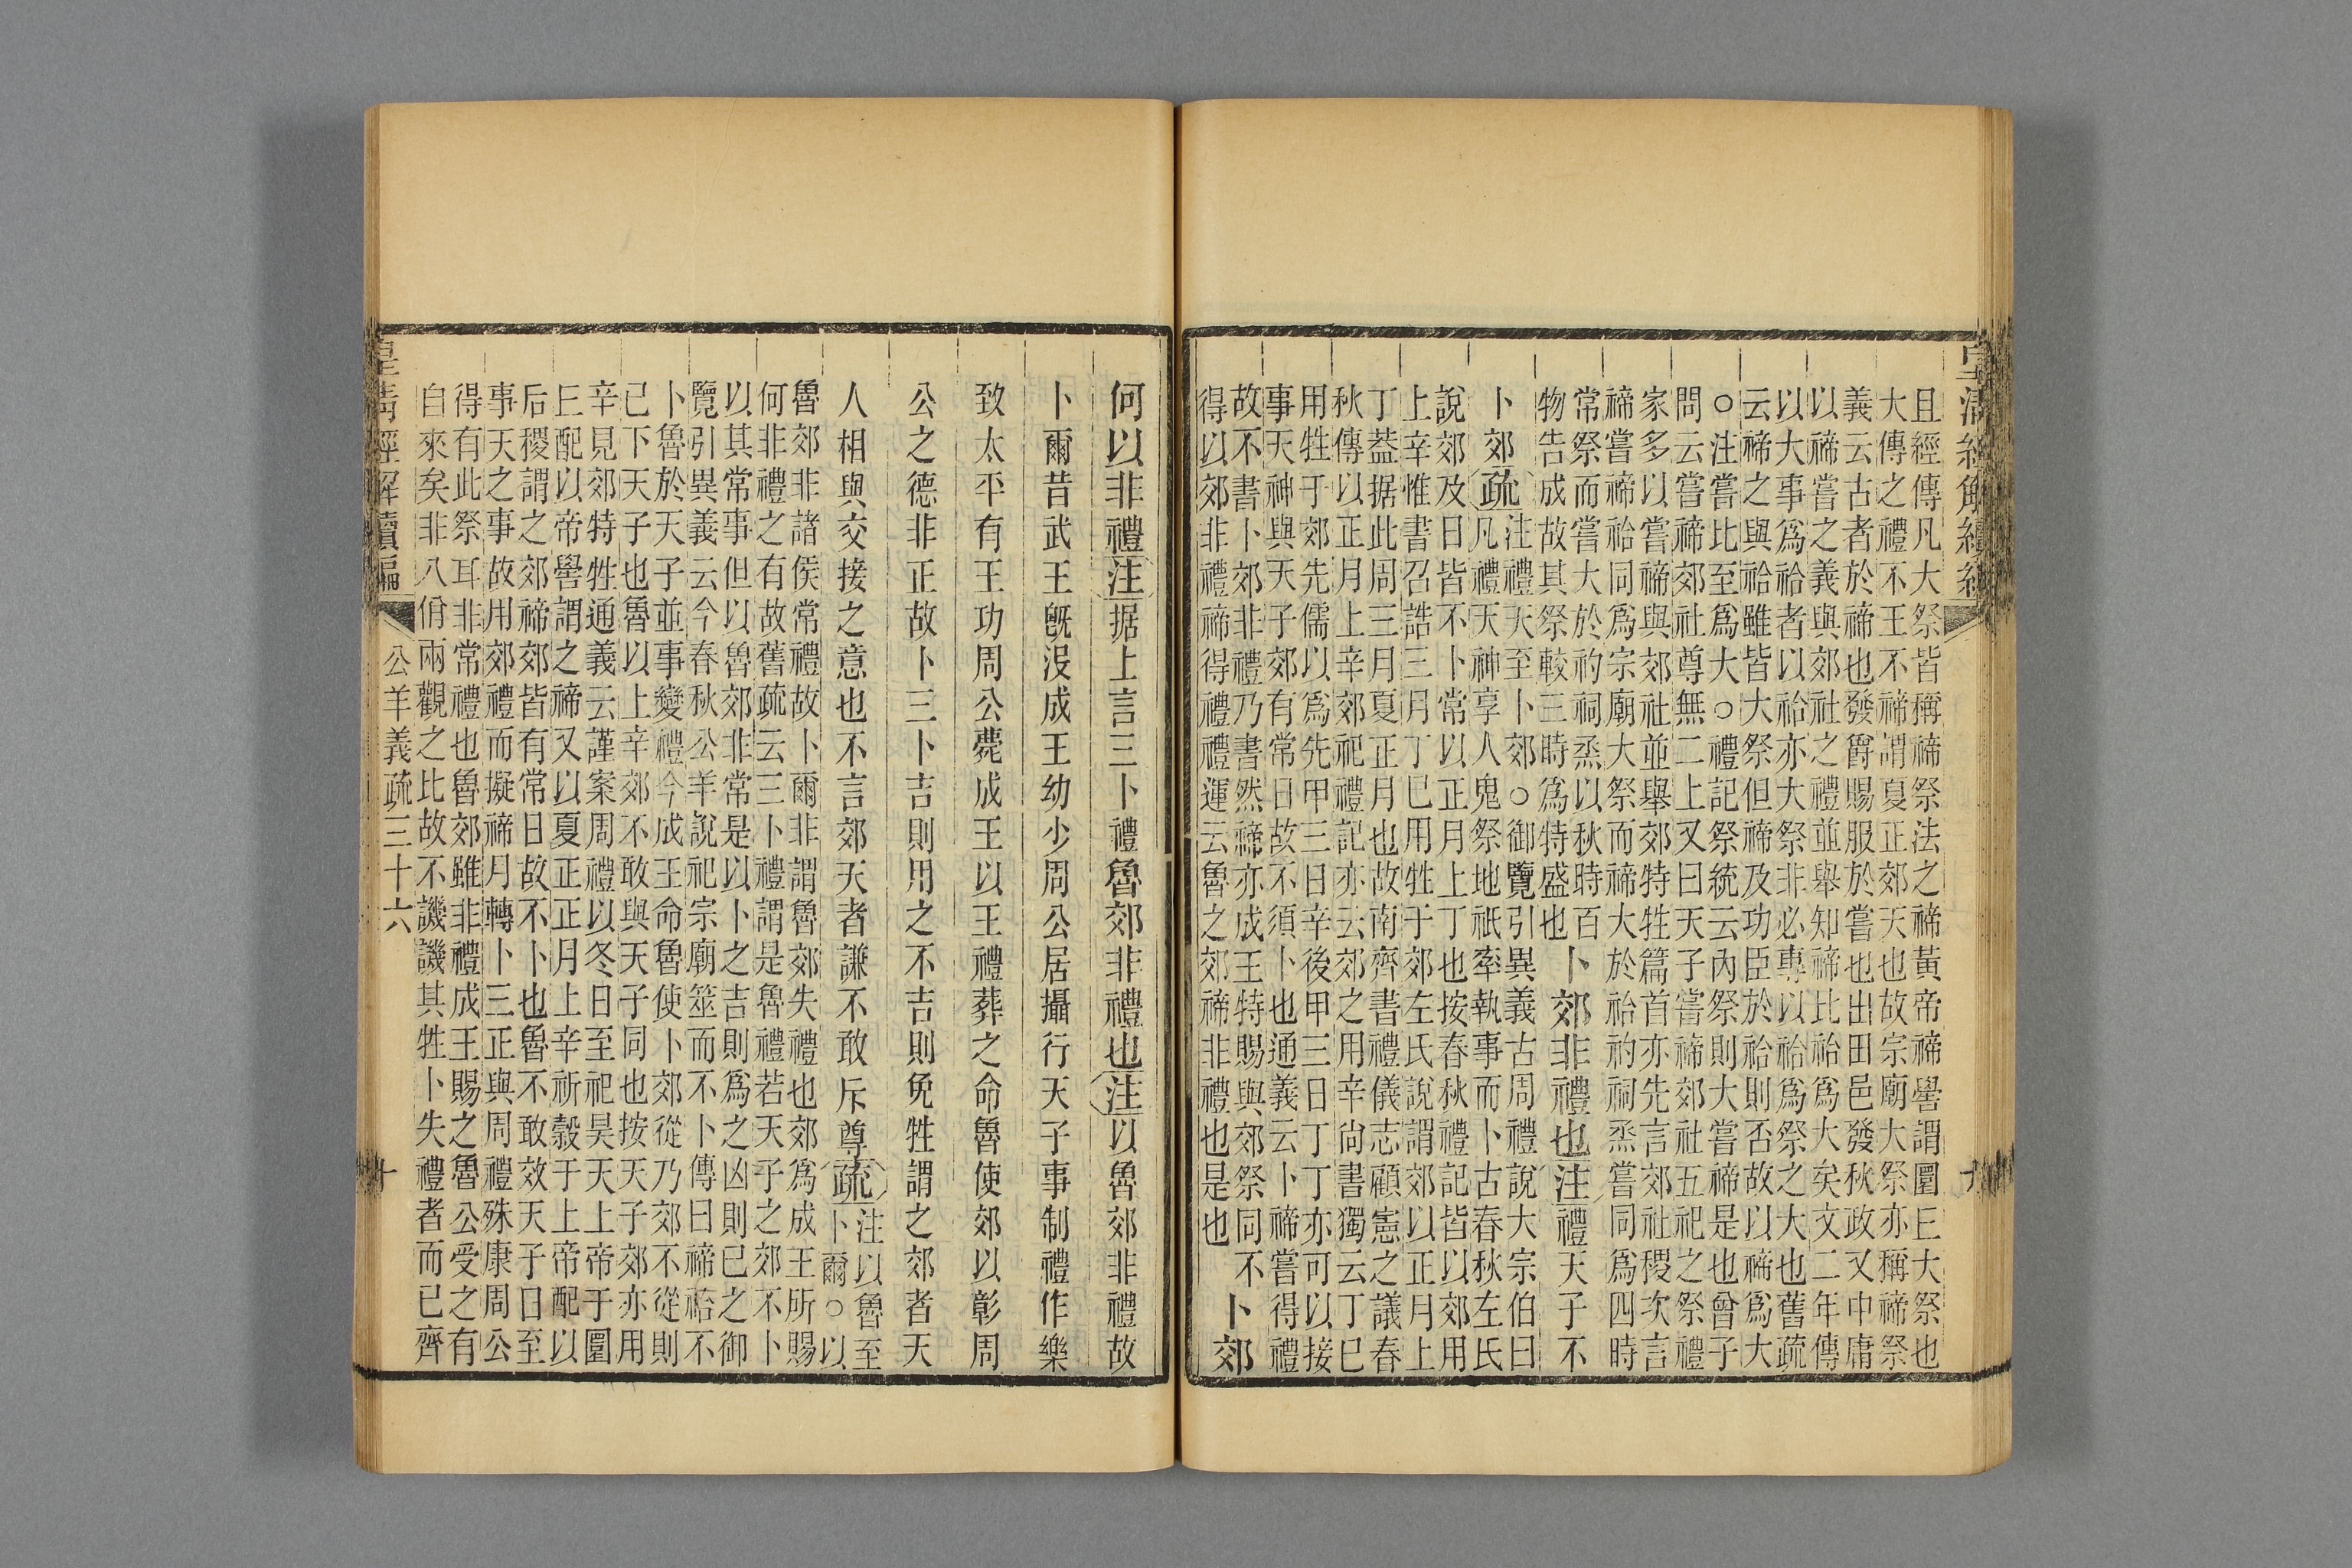 皇清經解續編
且經傳凡大祭皆稱禘祭法之禘黃帝禘嚳謂圜丘大祭也
大傳之禮不王不禘謂夏正郊天也故宗廟大祭亦稱禘祭
義云古者於禘也發爵賜服於嘗也出田邑發秋政又中庸
以禘嘗之義與郊社之禮並舉知禘比祫爲大矣文二年傳
以大事爲祫者以祫亦大祭非必專以祫爲祭之大也舊疏
云禘之與祫雖皆大祭但禘及功臣於祫則否故以禘爲大
○注嘗比至爲大○禮記祭統云內祭則大嘗禘是也曾子
問云嘗禘郊社尊無二上又曰天子嘗禘郊社五祀之祭禮
家多以嘗禘與郊社並舉郊特牲篇首亦先言郊社稷次言
禘嘗禘祫同爲宗廟大祭而禘大於祫礿祠烝嘗同爲四時
常祭而嘗大於礿祠烝以秋時百
物告成故其祭較三時爲特盛也
卜郊非禮也注禮天子不
卜郊疏
注禮天至卜郊○御覽引異義古周禮說大宗伯曰
凡禮天神享人鬼祭地祇率執事而卜古春秋左氏
說郊及日皆不卜常以正月上丁也按春秋禮記皆以郊用
上辛惟書召誥三月丁巳用牲于郊左氏說謂郊以正月上
丁葢据此周三月夏正月也故南齊書禮儀志顧憲之議春
秋傳以正月上辛郊祀禮記亦云郊之用辛尙書獨云丁巳
用牲于郊先儒以爲先甲三日辛後甲三日丁丁亦可以接
事天神與天子郊有常日故不須卜也通義云卜禘嘗得禮
故不書卜郊非禮乃書然禘亦成王特賜與郊祭同不
得以郊非禮禘得禮禮運云魯之郊禘非禮也是也
卜郊
何以非禮注据上言三卜禮魯郊非禮也注以魯郊非禮故
卜爾昔武王旣沒成王幼少周公居攝行天子事制禮作樂
致太平有王功周公薨成王以王禮葬之命魯使郊以彰周
公之德非正故卜三卜吉則用之不吉則免牲謂之郊者天
人相與交接之意也不言郊天者謙不敢斥尊疏
注以魯至
卜爾○以
魯郊非諸侯常禮故卜爾非謂魯郊失禮也郊爲成王所賜
何非禮之有故舊疏云三卜禮謂是魯禮若天子之郊不卜
以其常事但以魯郊非常是以卜之吉則爲之凶則已之御
覽引異義云今春秋公羊說祀宗廟筮而不卜傳曰禘祫不
卜魯於天子並事變禮今成王命魯使卜郊從乃郊不從則
已下天子也魯以上辛郊不敢與天子同也按天子郊亦用
辛見郊特牲通義云謹案周禮以冬日至祀昊天上帝于圜
丘配以帝嚳謂之禘又以夏正正月上辛祈穀于上帝配以
后稷謂之郊禘郊皆有常日故不卜也魯不敢效天子日至
事天之事故用郊禮而擬禘月轉卜三正與周禮殊康周公
得有此祭耳非常禮也魯郊雖非禮成王賜之魯公受之有
自來矣非八佾兩觀之比故不譏譏其牲卜失禮者而已齊
皇清經解續編 公羊義疏三十六 十